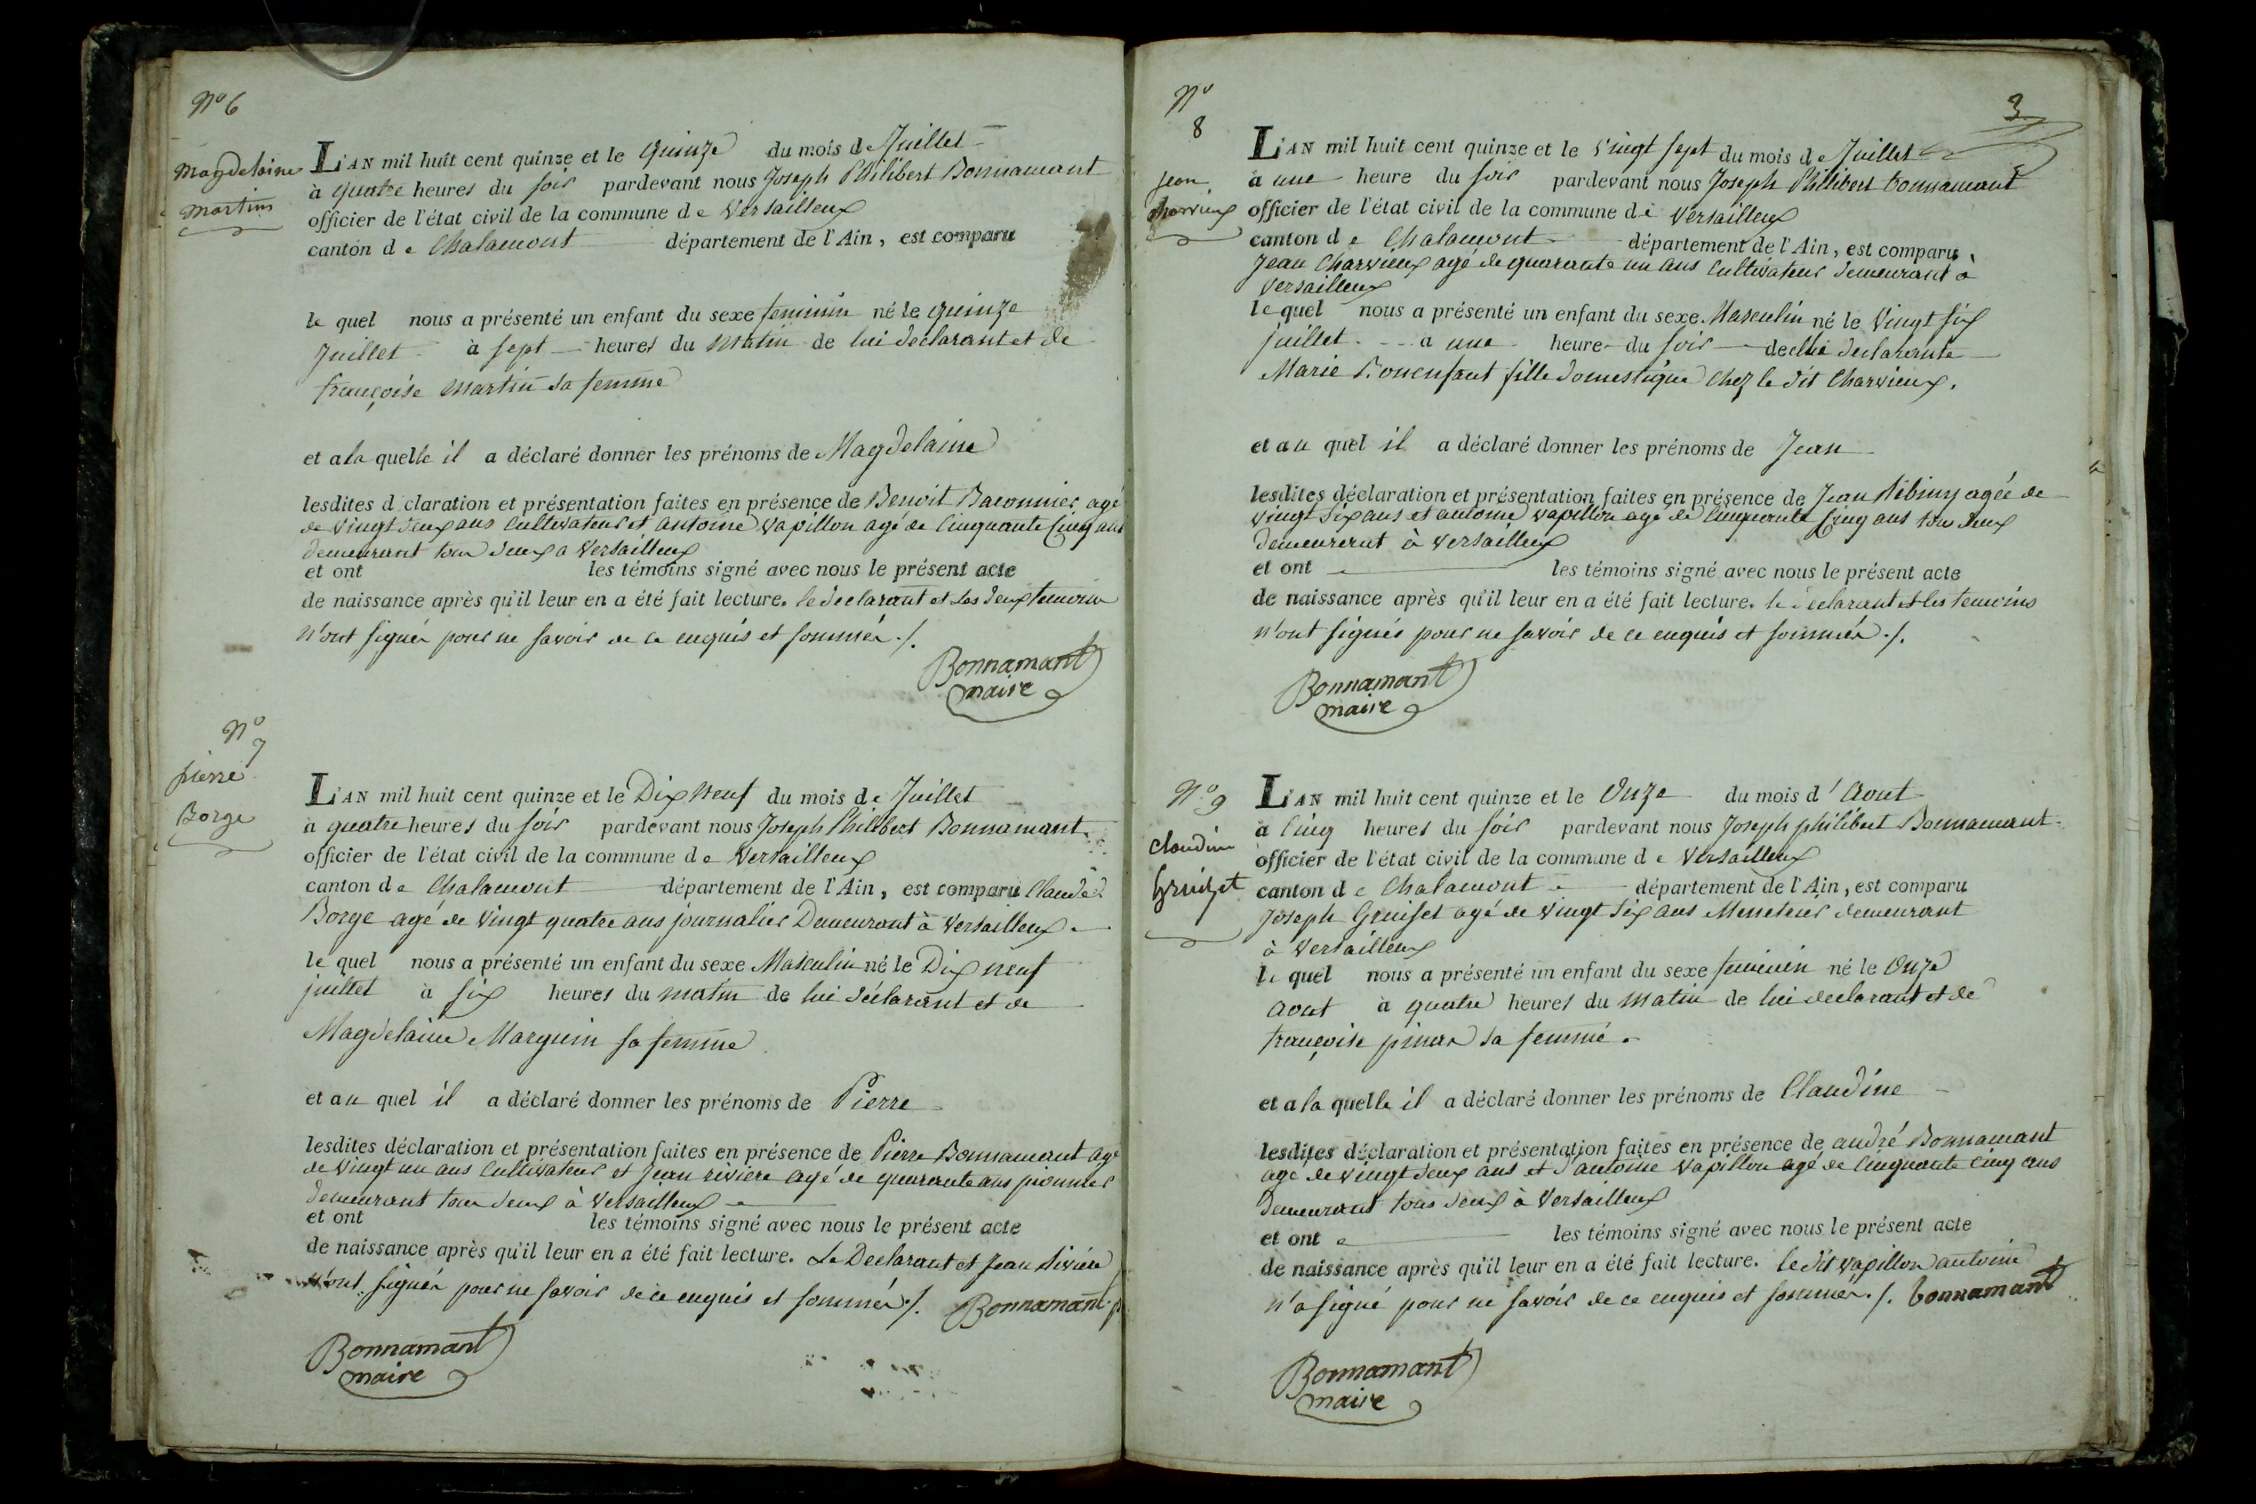 Nº 6
Magdelaine
Martin
L'AN mil huit cent quinze et le quinze du mois de Juillet
à quatre heures du soir pardevant nous Joseph Philibert Bonnamant
officier de l'état civil de la commune de Versailleux
canton de Chalamont département de l'Ain, est comparu
le quel nous a présenté un enfant du sexe feminin né le quinze
Juillet à sept heures du matin de lui declarant et de
françoise martin sa femme
et a la quelle il a déclaré donner les prénoms de Magdelaine
lesdites d claration et présentation faites en présence de Benoit Baconnier agé
de vingt deux ans cultivateur et antoine vapillon agé de cinquante cinq ans
demeurant tous deux a Versailleux
et ont les témoins signé avec nous le présent acte
de naissance après qu'il leur en a été fait lecture. le declarant et les deux temoins
n'ont signés pour ne savoir de ce enquis et sommés ./.
Bonnamant
maire
Nº
7
pierre
Borge
L'AN mil huit cent quinze et le Dix neuf du mois de Juillet
à quatre heures du soir pardevant nous Joseph Philibert Bonnamant
officier de l'état civil de la commune de Versailleux
canton de Chalamont département de l'Ain, est comparu Claude
Borge agé de vingt quatre ans journalier Demeurant à Versailleux
le quel nous a présenté un enfant du sexe Masculin né le Dix neuf
juillet à six heures du matin de lui déclarant et de
Magdelaine Marguin sa femme
et au quel il a déclaré donner les prénoms de Pierre
lesdites déclaration et présentation faites en présence de Pierre Bonnamant agé
de vingt un ans cultivateur et Jean riviere agé de quarante ans pionnier
demeurant tous deux à Versailleux
et ont les témoins signé avec nous le présent acte
de naissance après qu'il leur en a été fait lecture. Le Declarant et Jean Riviere
n'ont signés pour ne savoir de ce enquis et sommés ./. Bonnamant p
Bonnamant
maire
3
Nº
8
Jean
Charvieux
L'AN mil huit cent quinze et le vingt sept du mois de Juillet
à une heure du soir pardevant nous Joseph Philibert bonnamant
officier de l'état civil de la commune de Versailleux
canton de Chalamont département de l'Ain, est comparu
Jean Charvieux agé de quarante un ans cultivateur demeurant à
Versailleux
le quel nous a présenté un enfant du sexe Masculin né le vingt six
juillet à une heure du soir de déclarante
Marie Bonenfant fille domestique chez le dit Charvieux.
et au quel il a déclaré donner les prénoms de Jean
lesdites déclaration et présentation faites en présence de Jean agée de
vingt six ans et antoine vapillon agé de cinquante cinq ans tous deux
demeurerant à Versailleux
et ont les témoins signé avec nous le présent acte
de naissance après qu'il leur en a été fait lecture. le declarant et les temoins
n'ont signés pour ne savoir de ce enquis et sommés ./.
Bonnamant
maire
Nº 9
claudine
Gruizet
L'AN mil huit cent quinze et le Onze du mois d'Aout
à cinq heures du soir pardevant nous Joseph philibert Bonnamant
officier de l'état civil de la commune de Versailleux
canton de Chalamont département de l'Ain, est comparu
Joseph Gruiset agé de vingt six ans Menetrier demeurant
à Versailleux
le quel nous a présenté un enfant du sexe feminin né le Onze
aout à quatre heures du matin de lui declarant et de
françoise sa femme.
et a la quelle il a déclaré donner les prénoms de Claudine
lesdites déclaration et présentation faites en présence de andré Bonnamant
agé de vingt deux ans et d'antoine vapillon agé de cinquante cinq ans
demeurant tous deux à Versailleux
et ont les témoins signé avec nous le présent acte
de naissance après qu'il leur en a été fait lecture. le dit vapillon antoine
n'a signé pour ne savoir de ce enquis et sommés ./. bonnamant
Bonnamant
maire